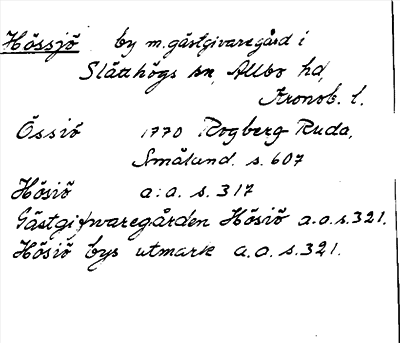 Hössjö by m. gästgivaregård i
Slätthögs sn, Allbo hd,
Kronob. l.
Össiö 1770 Rogberg-Ruda,
Småland. s. 607
Hösiö a. a. s. 317
Gästgifvaregården Hösiö a. a. s. 321.
Hösiö bys utmark a. a. s. 321.